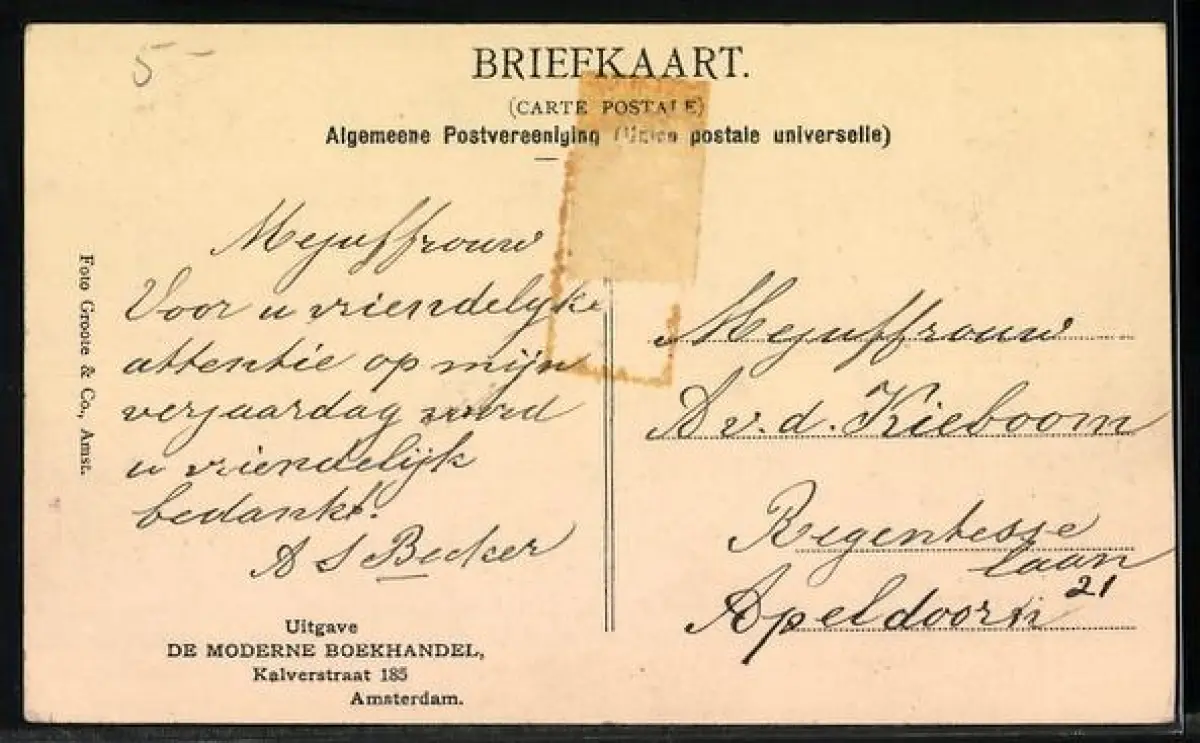 5 -
BRIEFKAART.
(CARTE POSTALE)
Algemeene Postvereeniging (Union postale universelle)
Foto Groote & Co., Amst.
Mejuffrouw
Voor u vriendelyke
attentie op mijn
verjaardag word
u vriendelijk
bedankt!
A S Becker
Uitgave
DE MODERNE BOEKHANDEL,
Kalverstraat 185
Amsterdam.
Mejuffrouw
A v. d. Kieboom
Regentesse
laan
21
Apeldoorn